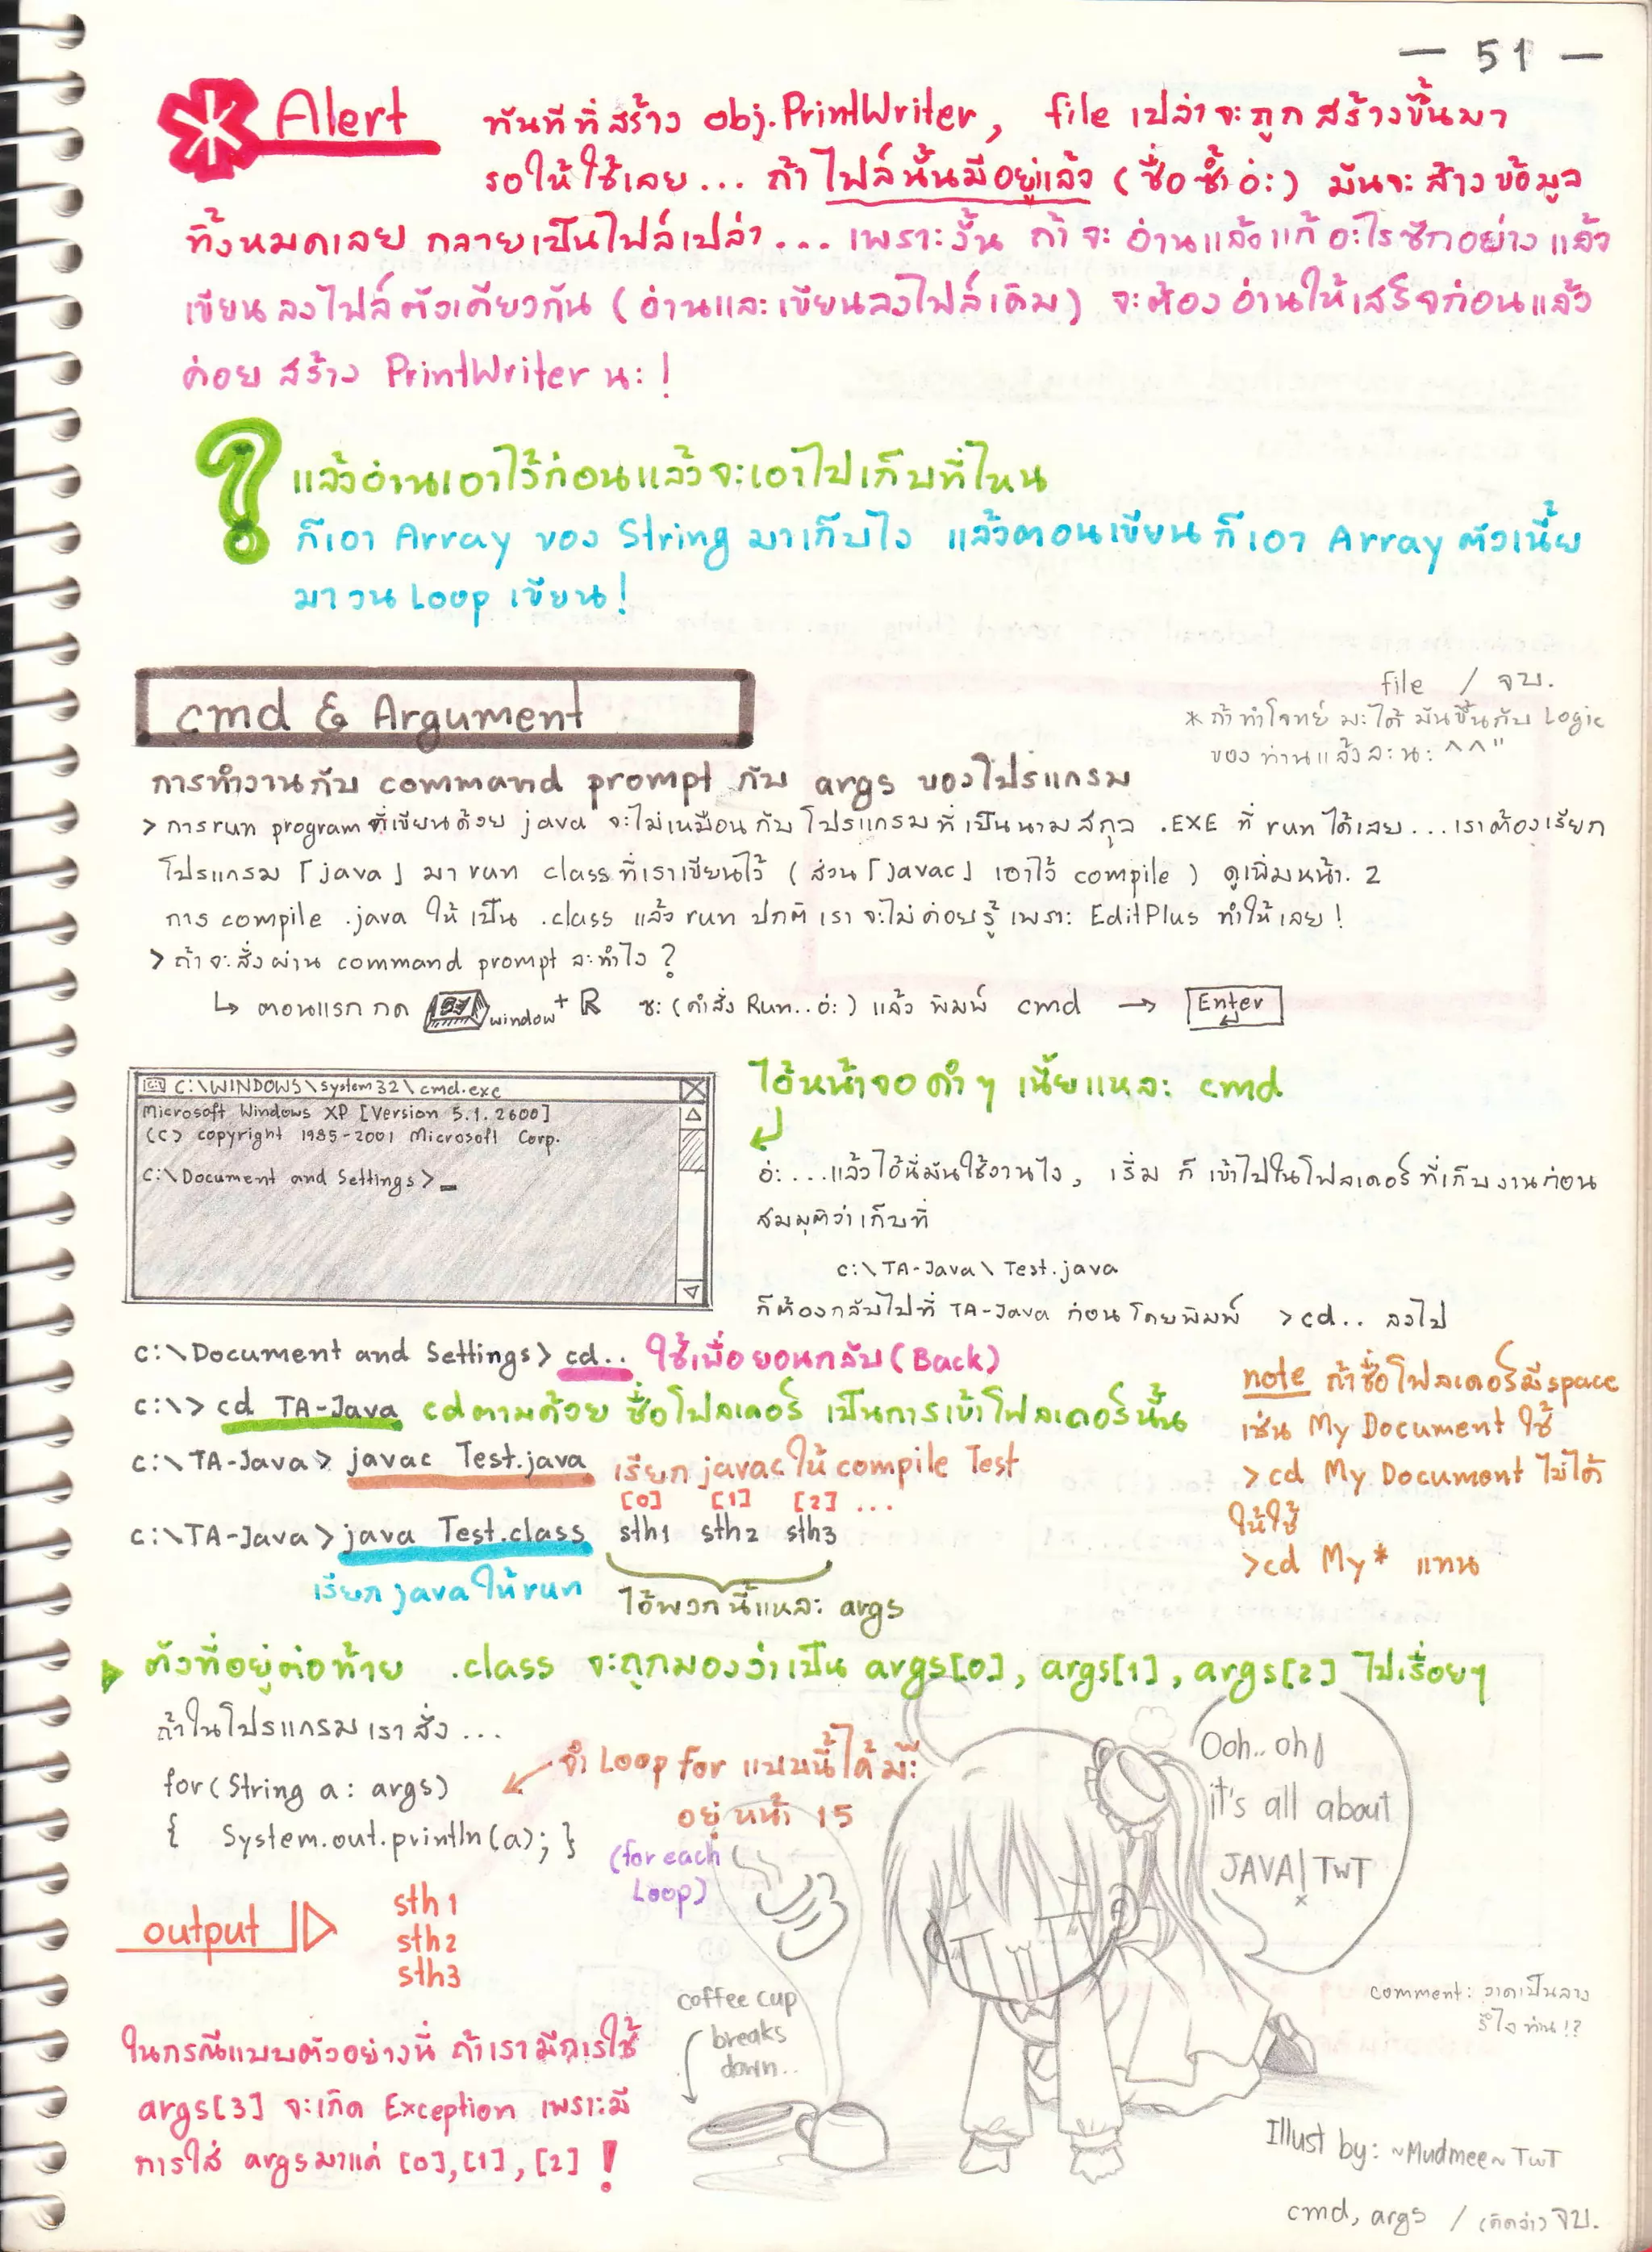 — 51 —
Alert ทันทีที่สร้าง obj.PrintWriter, file เปล่าจะถูกสร้างขึ้นมา
รอให้ใช้เลย... ถ้าไฟล์นั้นมีอยู่แล้ว (ชื่อซ้ำอ่ะ) มันจะล้างข้อมูล
ทิ้งหมดเลย กลายเป็นไฟล์เปล่า... เพราะงั้น ถ้าจะ อ่านแล้วแก้ อะไรซักอย่าง แล้ว
เขียนลงไฟล์ตัวเดียวกัน (อ่านและเขียนลงไฟล์เดิม) จะต้องอ่านให้เสร็จก่อนแล้ว
ค่อย สร้าง PrintWriter นะ!
? แล้วอ่านเอาไว้ก่อนแล้วจะเอาไปเก็บที่ไหน
ก็เอา Array ของ String มาเก็บไง แล้วตอนเขียน ก็เอา Array ตัวเนี้ย
มาวน Loop เขียน!
file / จบ.
* ถ้าทำโจทย์ มะได้ มันขึ้นกับ Logic
ของท่านแล้วละนะ ^^"
cmd & Argument
การทำงานกับ command prompt กับ args ของโปรแกรม
> การ run program ที่เขียนด้วย java จะไม่เหมือนกับโปรแกรมที่เป็นนามสกุล .EXE ที่ run ได้เลย... เราต้องเรียก
โปรแกรม「java」มา run class ที่เราเขียนไว้ (ส่วน「javac」เอาไว้ compile) ดูเพิ่มหน้า. 2
การ compile .java ให้เป็น .class แล้ว run ปกติเราจะไม่ค่อยรู้ เพราะ EditPlus ทำให้เลย!
> ถ้าจะสั่งผ่าน command prompt ละทำไง ?
↳ ตอนแรก กด window + R ซะ (คำสั่ง Run..อ่ะ) แล้ว พิมพ์ cmd → Enter
C:\WINDOWS\system32\cmd.exe
Microsoft Windows XP [Version 5.1.2600]
(C) copyright 1985-2001 Microsoft Corp.
C:\Document and Settings>_
ไอ้หน้าจอดำๆ เนี่ยแหละ cmd
อ่ะ...แล้วไอ้นี่มันใช้งานไง, เริ่ม ก็ เข้าไปในโฟลเดอร์ที่เก็บงานก่อน
สมมุติว่าเก็บที่
c:\TA-Java\Test.java
ก็ต้องกลับไปที่ TA-Java ก่อนโดยพิมพ์ >cd.. ลงไป
c:\Document and Settings> cd.. ใช้เพื่อย้อนกลับ (Back)
c:\> cd TA-Java cd ตามด้วย ชื่อโฟลเดอร์ เป็นการเข้าโฟลเดอร์นั้น
c:\TA-Java> javac Test.java เรียก javac ให้ compile Test
[0] [1] [2] ...
c:\TA-Java> java Test.class sth1 sth2 sth3
เรียก java ให้ run ไอ้พวกนี้แหละ args
note ถ้าชื่อโฟลเดอร์มี space
เช่น My Document ใช้
>cd My Document ไม่ได้
ให้ใช้
>cd My* แทน
ตัวที่อยู่ต่อท้าย .class จะถูกมองว่าเป็น args[0], args[1], args[2] ไปเรื่อยๆ
ถ้าในโปรแกรมเราสั่ง...
for(String a: args)
{ System.out.println(a); }
จำ Loop for แบบนี้ได้มะ
อยู่หน้า 15
(for each
Loop)
output
sth1
sth2
sth3
ในกรณีแบบตัวอย่างนี้ ถ้าเรามีการใช้
args[3] จะเกิด Exception เพราะมี
การใส่ args มาแค่ [0],[1],[2] !
Ooh.. oh
it's all about
JAVA TwT
coffee cup
breaks
down..
comment: วาดเป็นลาง
รึไงท่าน!?
Illust by: ~Mudmee~ TwT
cmd, args / (คิดว่า) จบ.